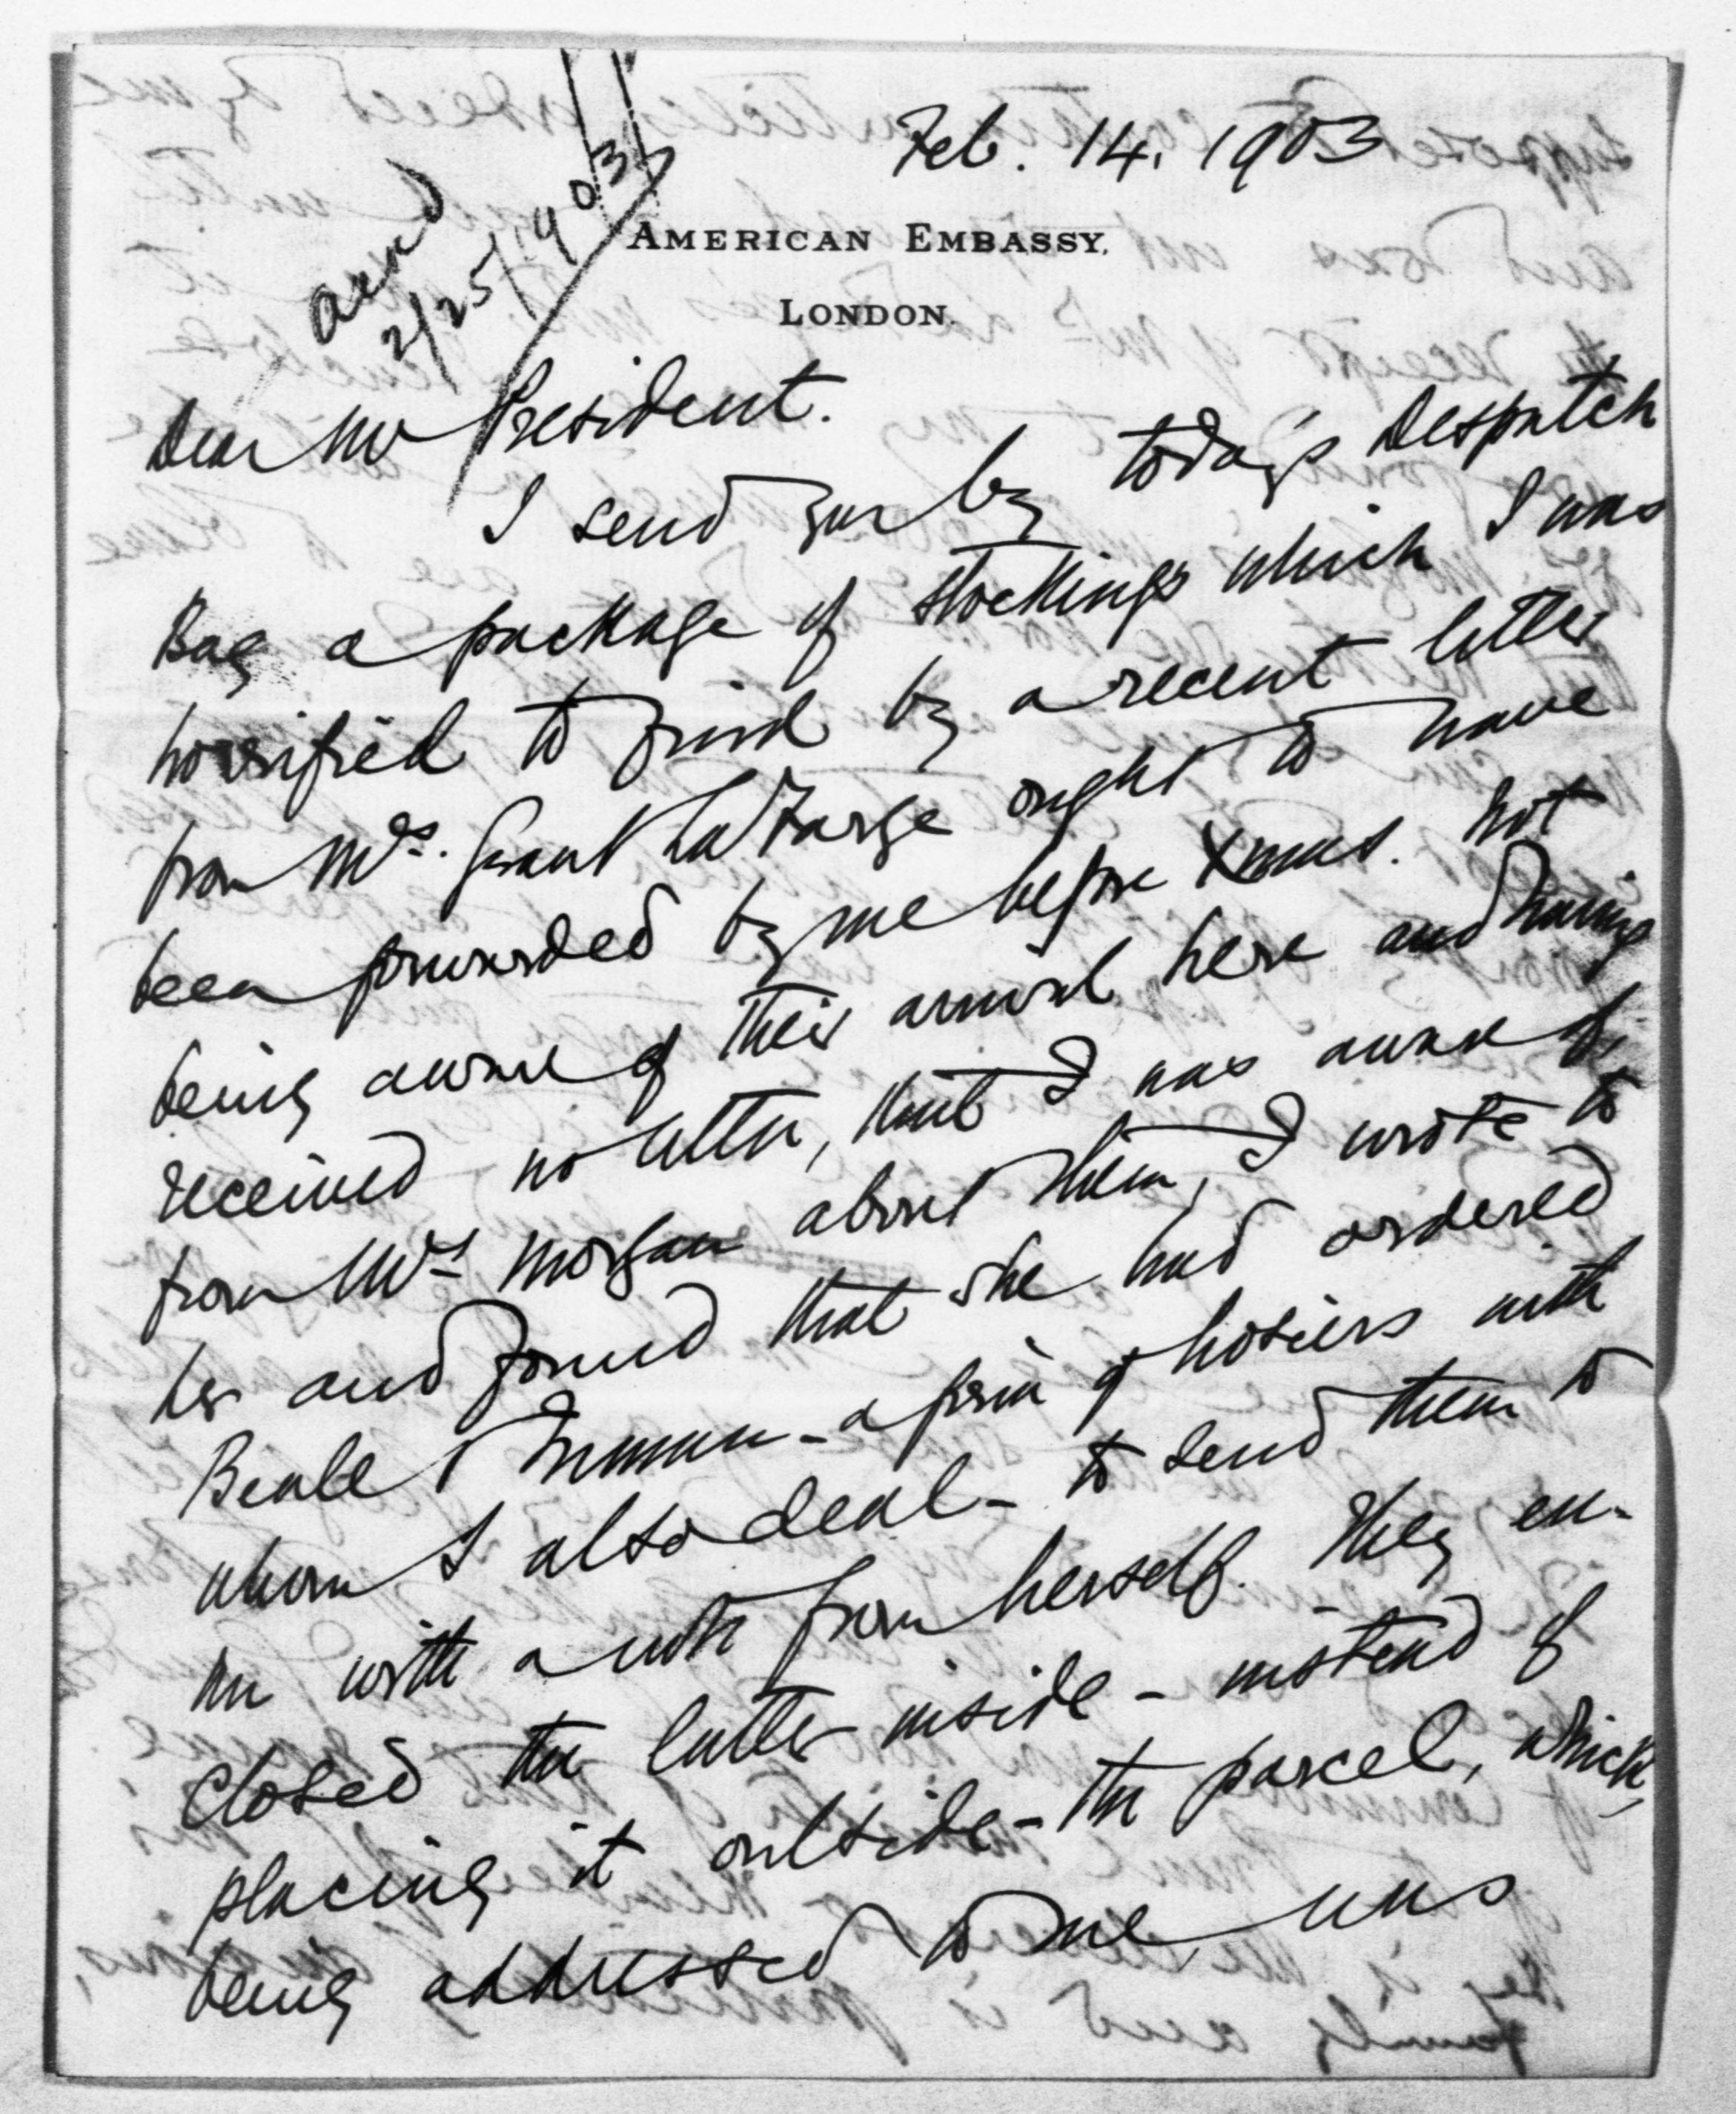 Feb. 14, 1903
ackd
2/25/1903
AMERICAN EMBASSY.
LONDON.
Dear Mr President.
I send you by today's Despatch
Bag a package of stockings which I was
horrified to find by a recent letter
from Mrs. Grant LaFarge ought to have
been forwarded by me before Xmas. Not
being aware of their arrival here and having
received no letter, that I was aware of,
from Mrs Morgan about them, I wrote to
her and found that she had ordered
Beale & Inman - a firm of hosiers with
whom I also deal - to send them to
me with a note from herself. They en-
closed the latter inside - instead of
placing it outside - the parcel, which,
being addressed to me, was